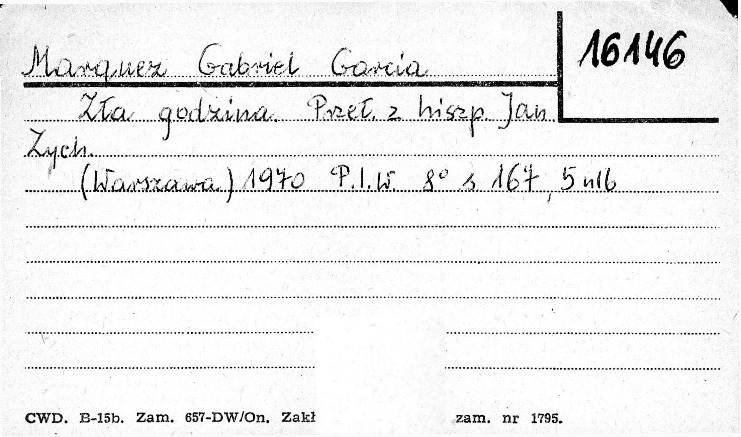 16146
Marquez Gabriel Garcia
Zła godzina. Przeł. z hiszp. Jan
Zych.
(Warszawa) 1970 P.I.W. 8° s 167, 5 nlb
CWD. B-15b. Zam. 657-DW/On. Zakł zam. nr 1795.